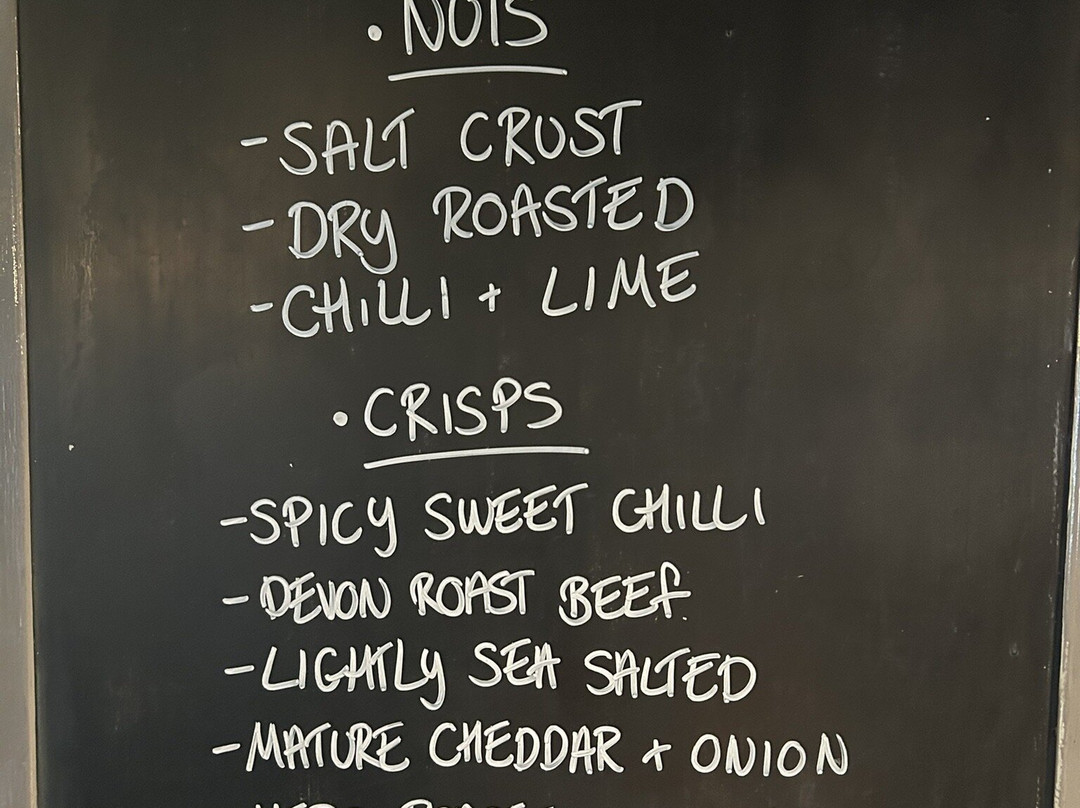 • NUTS
- SALT CRUST
- DRY ROASTED
- CHILLI + LIME
• CRISPS
- SPICY SWEET CHILLI
- DEVON ROAST BEEF.
- LIGHTLY SEA SALTED
- MATURE CHEDDAR + ONION